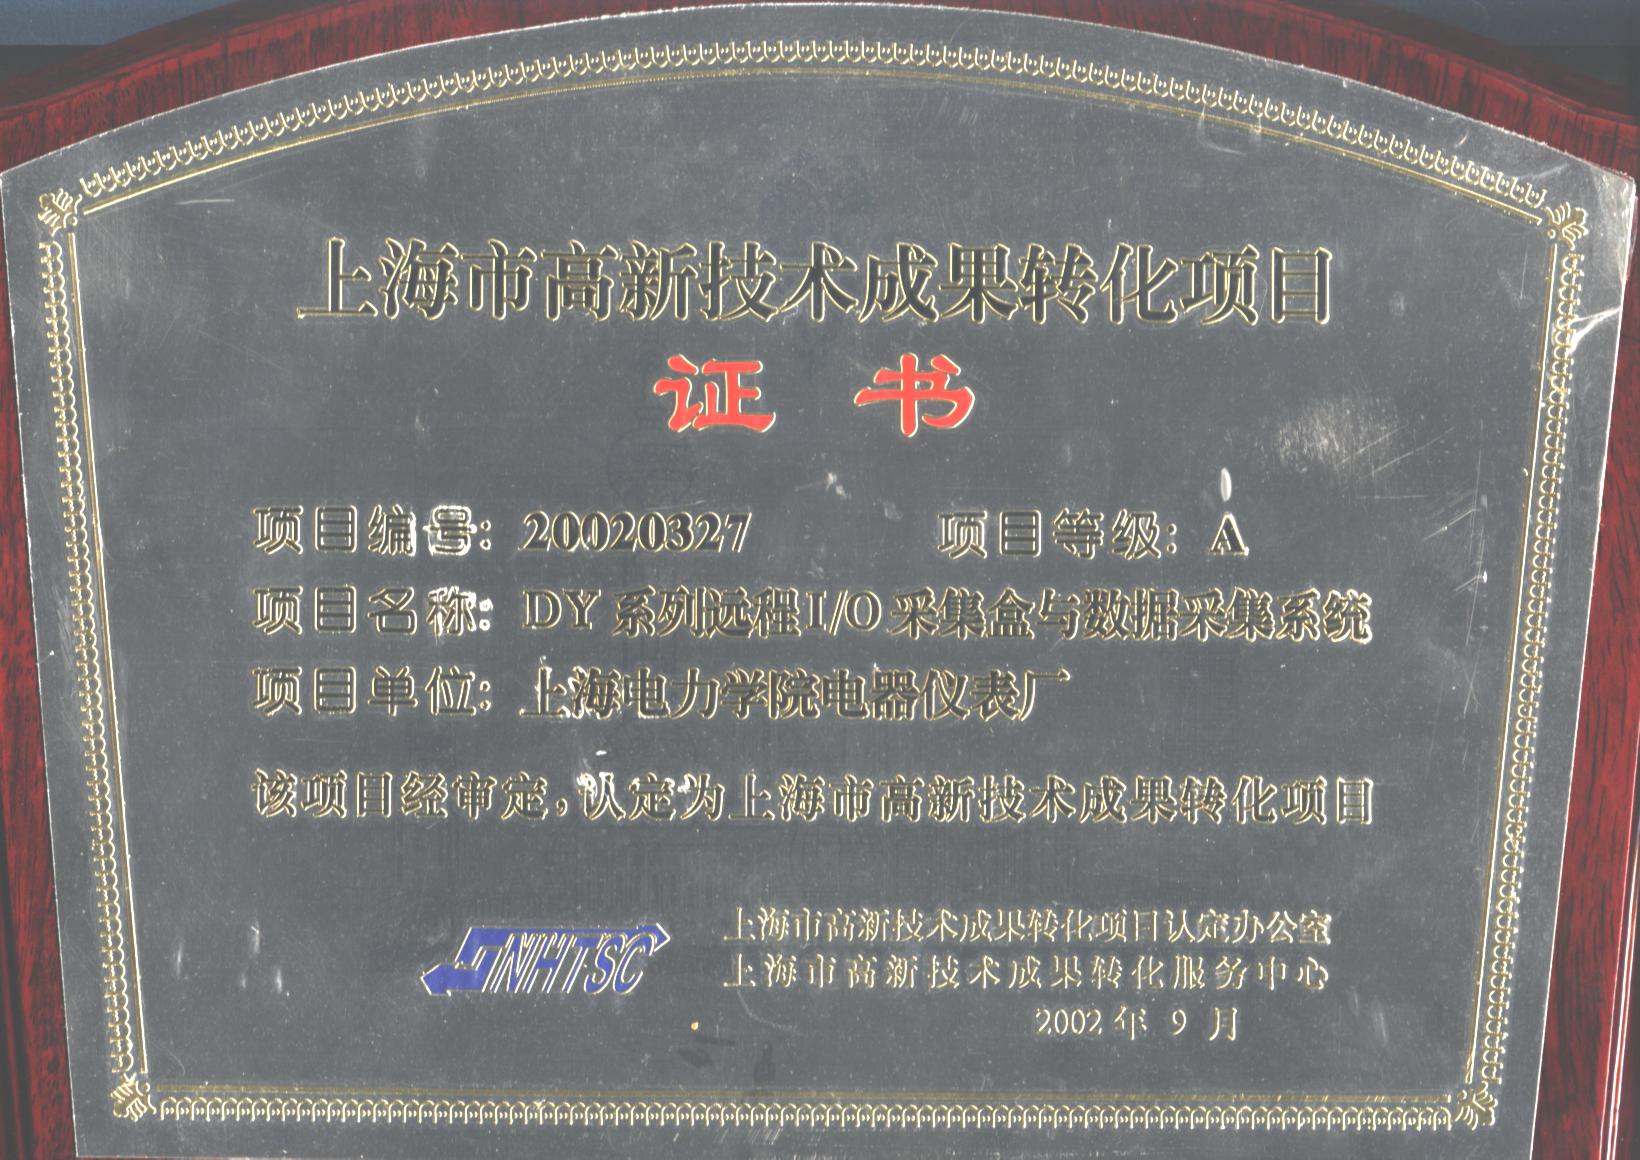 上海市高新技术成果转化项目
证 书
项目编号: 20020327 项目等级: A
项目名称: DY 系列远程 I/O 采集盒与数据采集系统
项目单位: 上海电力学院电器仪表厂
该项目经审定,认定为上海市高新技术成果转化项目
SNHTSC
上海市高新技术成果转化项目认定办公室
上海市高新技术成果转化服务中心
2002 年 9 月